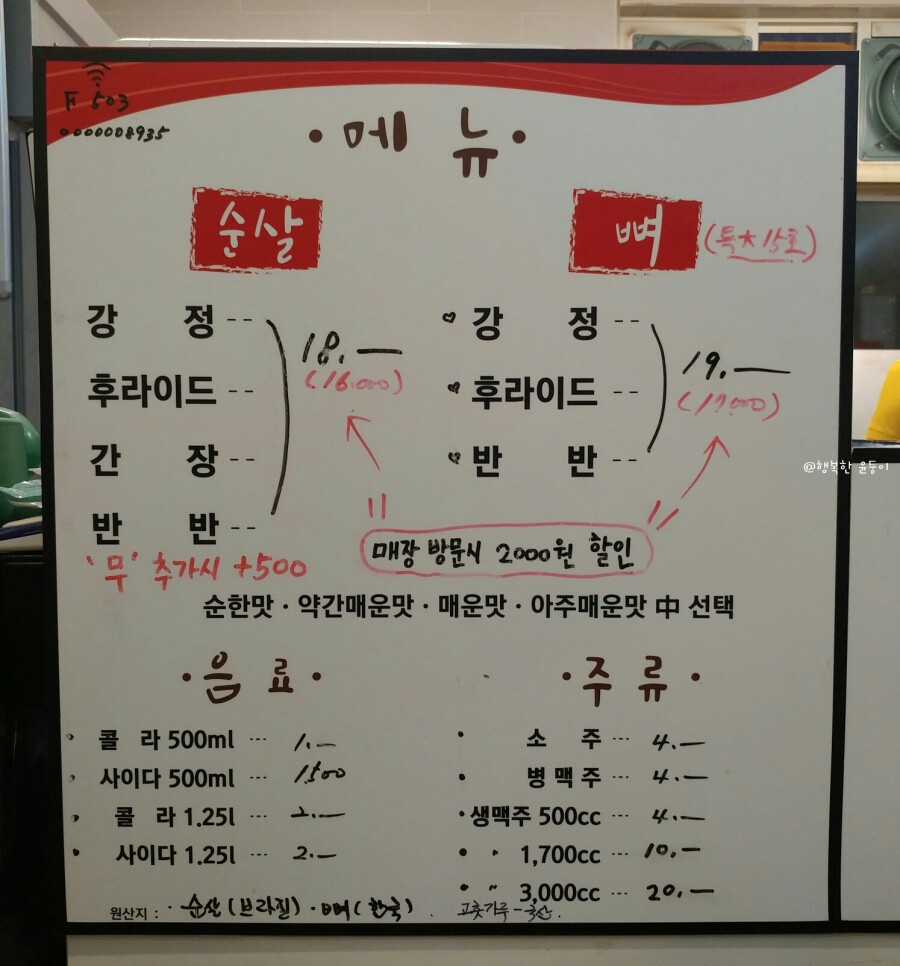 F 503
0000008935
· 메 뉴 ·
순살
강 정 --
후라이드 --
간 장 --
반 반 --
18.—
(16.000)
'무' 추가시 +500
뼈 (특大 15호)
강 정 --
후라이드 --
반 반 --
19.—
(17.000)
매장 방문시 2000원 할인
순한맛 · 약간매운맛 · 매운맛 · 아주매운맛 中 선택
· 음 료 ·
콜 라 500ml ··· 1.—
사이다 500ml ··· 1500
콜 라 1.25l ··· 2.—
사이다 1.25l ··· 2.—
· 주 류 ·
· 소 주 ··· 4.—
· 병 맥 주 ··· 4.—
· 생맥주 500cc ··· 4.—
· 〃 1,700cc ··· 10.—
· 〃 3,000cc ··· 20.—
원산지 : · 순살(브라질) · 뼈(한국) . 고춧가루-국산.
@행복한 윤둥이